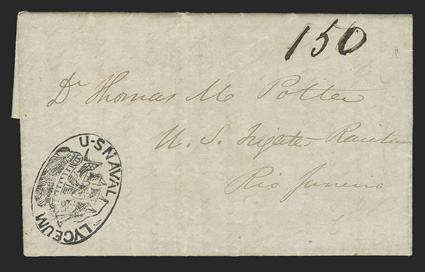 150
Dr Thomas M Potter
U. S. Frigate Raritan
Rio Janeiro
U·S NAVAL LYCEUM